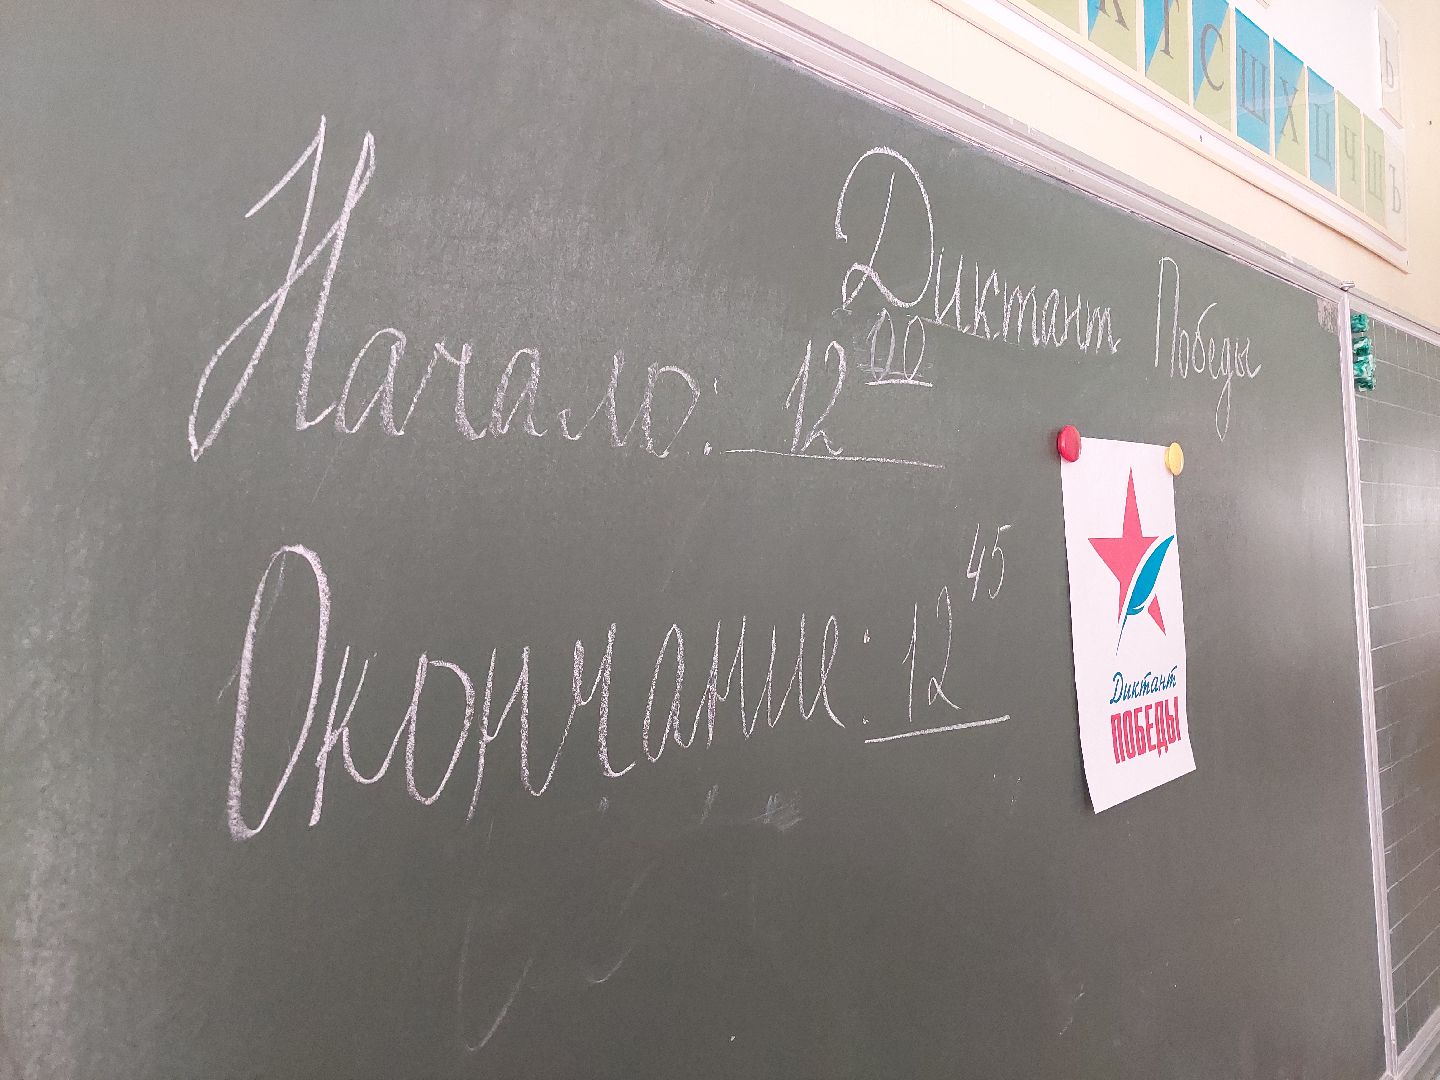 К Т С Ш Х Ц Ч Щ Ъ
Ь
Диктант Победы
Начало: 12 00
Окончание: 12 45
Диктант
ПОБЕДЫ